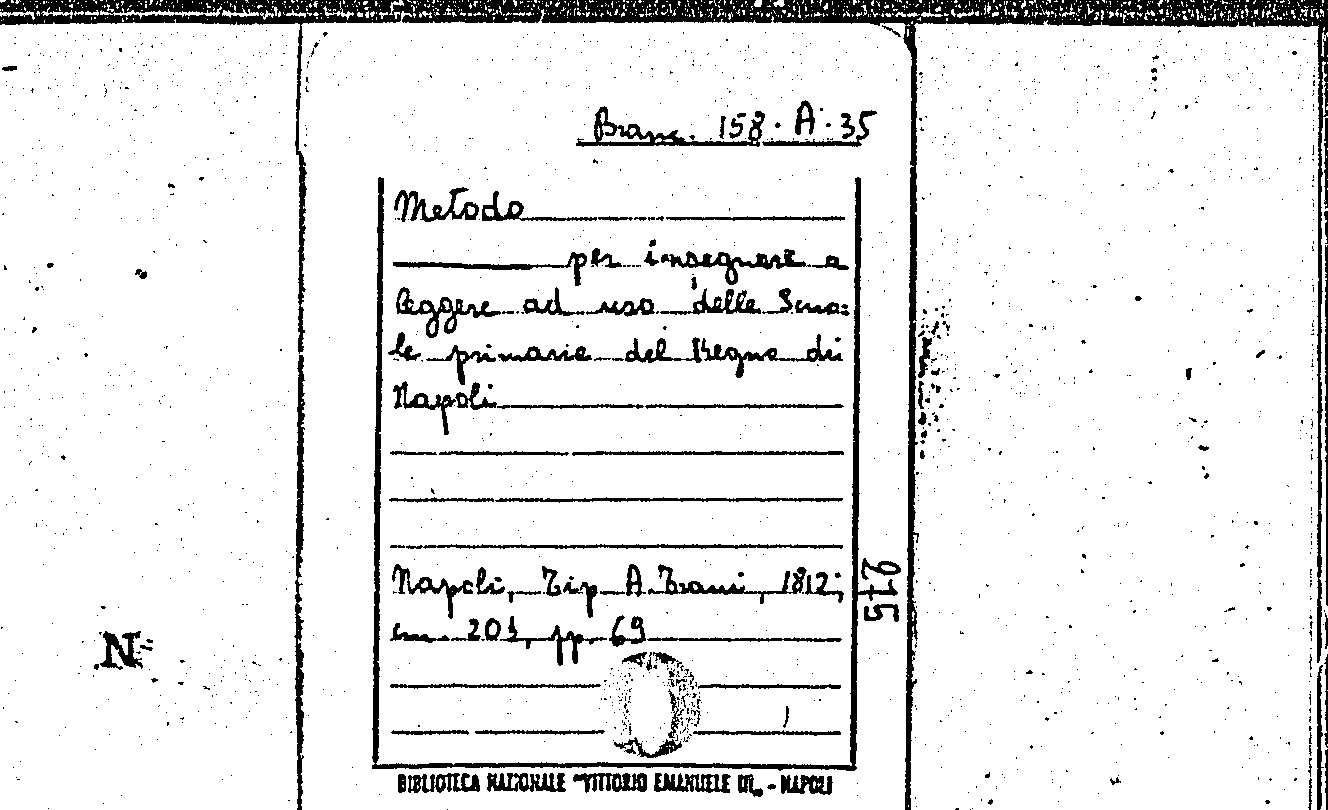 Branc. 158. A. 35
Metodo
per insegnare a
leggere ad uso delle Scuo=
le primarie del Regno di
Napoli
Napoli, Tip A. Trani, 1812;
cm. 201, pp. 69
275
N
BIBLIOTECA NAZIONALE "VITTORIO EMANUELE III„ - NAPOLI